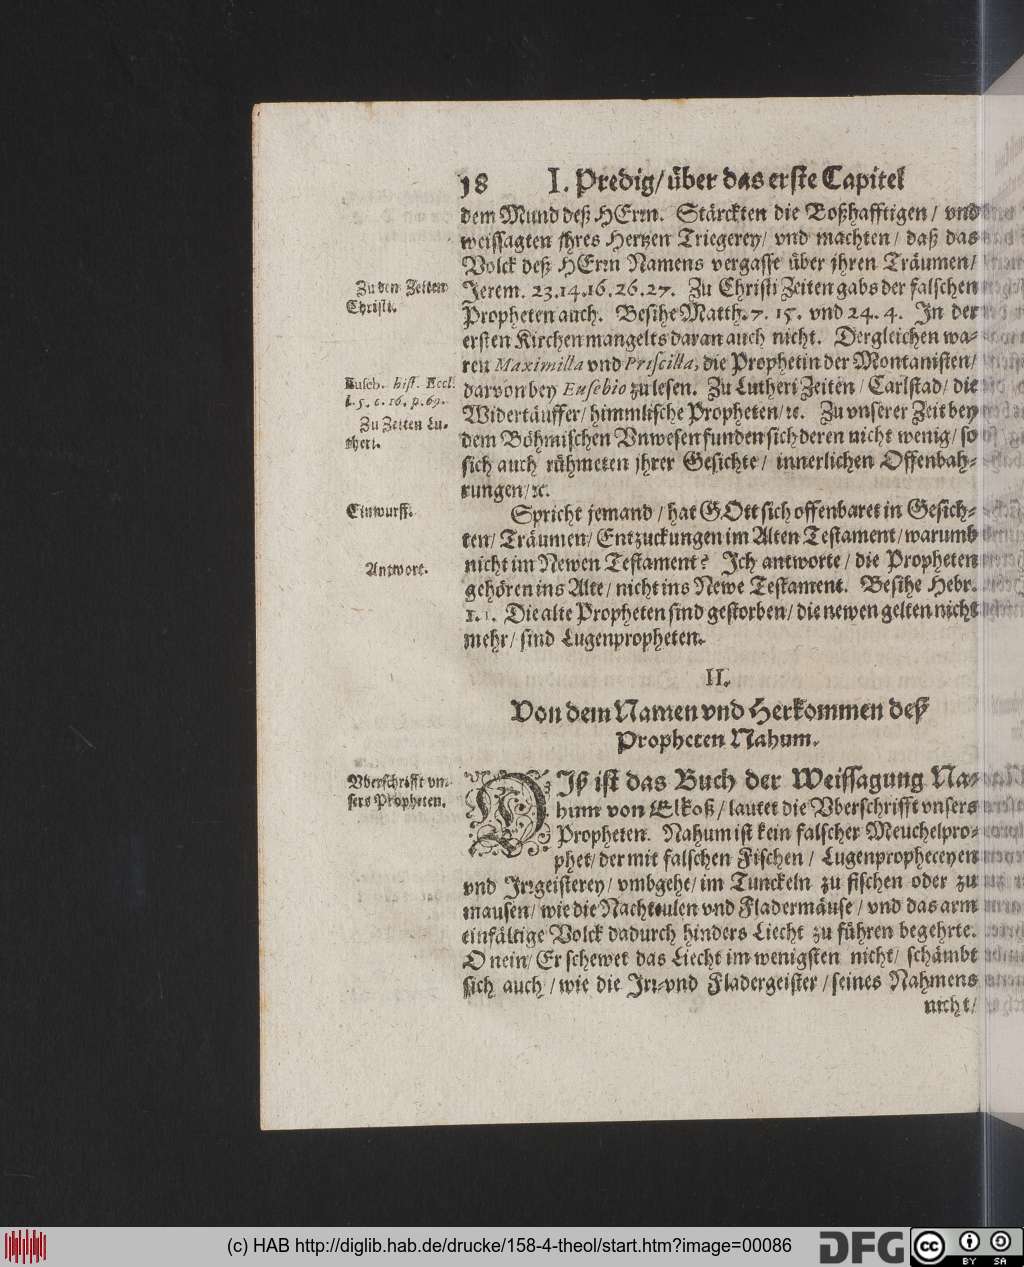 18 I. Predig/ über das erste Capitel
dem Mund deß HErrn. Stärckten die Boßhafftigen/ vnd
weissagten jhres Hertzen Triegerey/ vnd machten/ daß das
Volck deß HErrn Namens vergasse über jhren Träumen/
Zu den Zeiten
Christi.
Jerem. 23.14.16.26.27. Zu Christi Zeiten gabs der falschen
Propheten auch. Besihe Matth. 7. 15. vnd 24. 4. In der
ersten Kirchen mangelts daran auch nicht. Dergleichen wa-
ren Maximilla vnd Priscilla, die Prophetin der Montanisten/
Euseb. hist. Eccl.
l. 5. c. 16. p. 69.
darvon bey Eusebio zu lesen. Zu Lutheri Zeiten/ Carlstad/ die
Widertäuffer/ himmlische Propheten/ ꝛc. Zu vnserer Zeit bey
Zu Zeiten Lu-
theri.
dem Böhmischen Vnwesen funden sich deren nicht wenig/ so
sich auch rühmeten jhrer Gesichte/ innerlichen Offenbah-
rungen/ ꝛc.
Einwurff.
Spricht jemand/ hat GOtt sich offenbaret in Gesich-
ten/ Träumen/ Entzuckungen im Alten Testament/ warumb
nicht im Newen Testament? Ich antworte/ die Propheten
Antwort.
gehören ins Alte/ nicht ins Newe Testament. Besihe Hebr.
1. 1. Die alte Propheten sind gestorben/ die newen gelten nicht
mehr/ sind Lugenpropheten.
II.
Von dem Namen vnd Herkommen deß
Propheten Nahum.
Vberschrifft vn-
sers Propheten.
DIß ist das Buch der Weissagung Na-
hum von Elkoß/ lautet die Vberschrifft vnsers
Propheten. Nahum ist kein falscher Meuchelpro-
phet/ der mit falschen Fischen/ Lugenpropheceyen
vnd Irrgeisterey/ vmbgehe/ im Tunckeln zu fischen oder zu
mausen/ wie die Nachteulen vnd Fladermäuse/ vnd das arm
einfältige Volck dadurch hinders Liecht zu führen begehrte.
O nein/ Er schewet das Liecht im wenigsten nicht/ schämbt
sich auch/ wie die Irr- vnd Fladergeister/ seines Nahmens
nicht/
(c) HAB http://diglib.hab.de/drucke/158-4-theol/start.htm?image=00086
DFG
cc BY SA